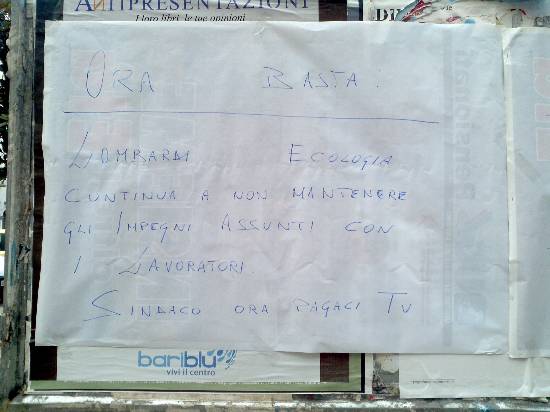 ANTIPRESENTAZIONI
I loro libri, le tue opinioni
ORA BASTA:
LOMBARDI ECOLOGIA
CONTINUA A NON MANTENERE
GLI IMPEGNI ASSUNTI CON
I LAVORATORI.
SINDACO ORA PAGACI TU
bariblù
vivi il centro